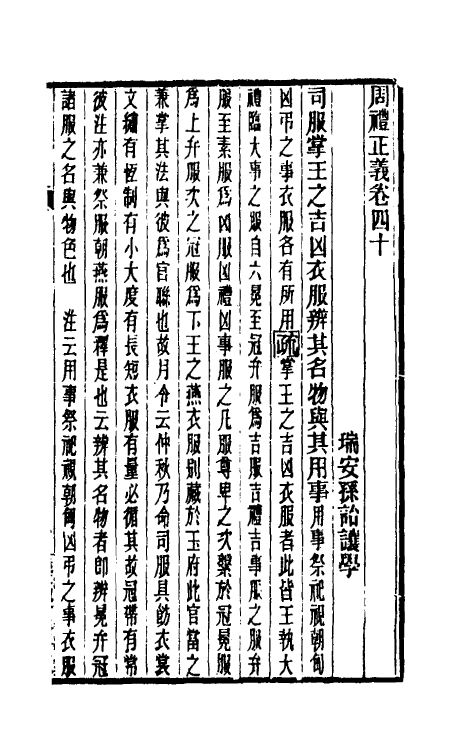 周禮正義卷四十
瑞安孫詒讓學
司服掌王之吉凶衣服辨其名物與其用事用事祭祀視朝甸
凶弔之事衣服各有所用疏掌王之吉凶衣服者此皆王執大
禮臨大事之服自六冕至冠弁服為吉服吉禮吉事服之服弁
服至素服為凶服凶禮凶事服之凡服尊卑之次繫於冠冕服
為上弁服次之冠服為下王之燕衣服別藏於玉府此官當之
兼掌其法與彼為官聯也故月令云仲秋乃命司服具飭衣裳
文繡有恆制有小大度有長短衣服有量必循其故冠帶有常
彼注亦兼祭服朝燕服為釋是也云辨其名物者即辨冕弁冠
諸服之名與物色也　注云用事祭祀視朝甸凶弔之事衣服